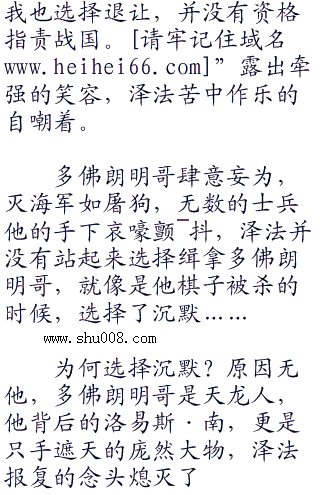 我也选择退让，并没有资格
指责战国。[请牢记住域名
www.heihei66.com]”露出牵
强的笑容，泽法苦中作乐的
自嘲着。
多佛朗明哥肆意妄为，
灭海军如屠狗，无数的士兵
他的手下哀嚎颤¯抖，泽法并
没有站起来选择缉拿多佛朗
明哥，就像是他棋子被杀的
时候，选择了沉默……
www.shu008.com
为何选择沉默？原因无
他，多佛朗明哥是天龙人，
他背后的洛易斯·南，更是
只手遮天的庞然大物，泽法
报复的念头熄灭了